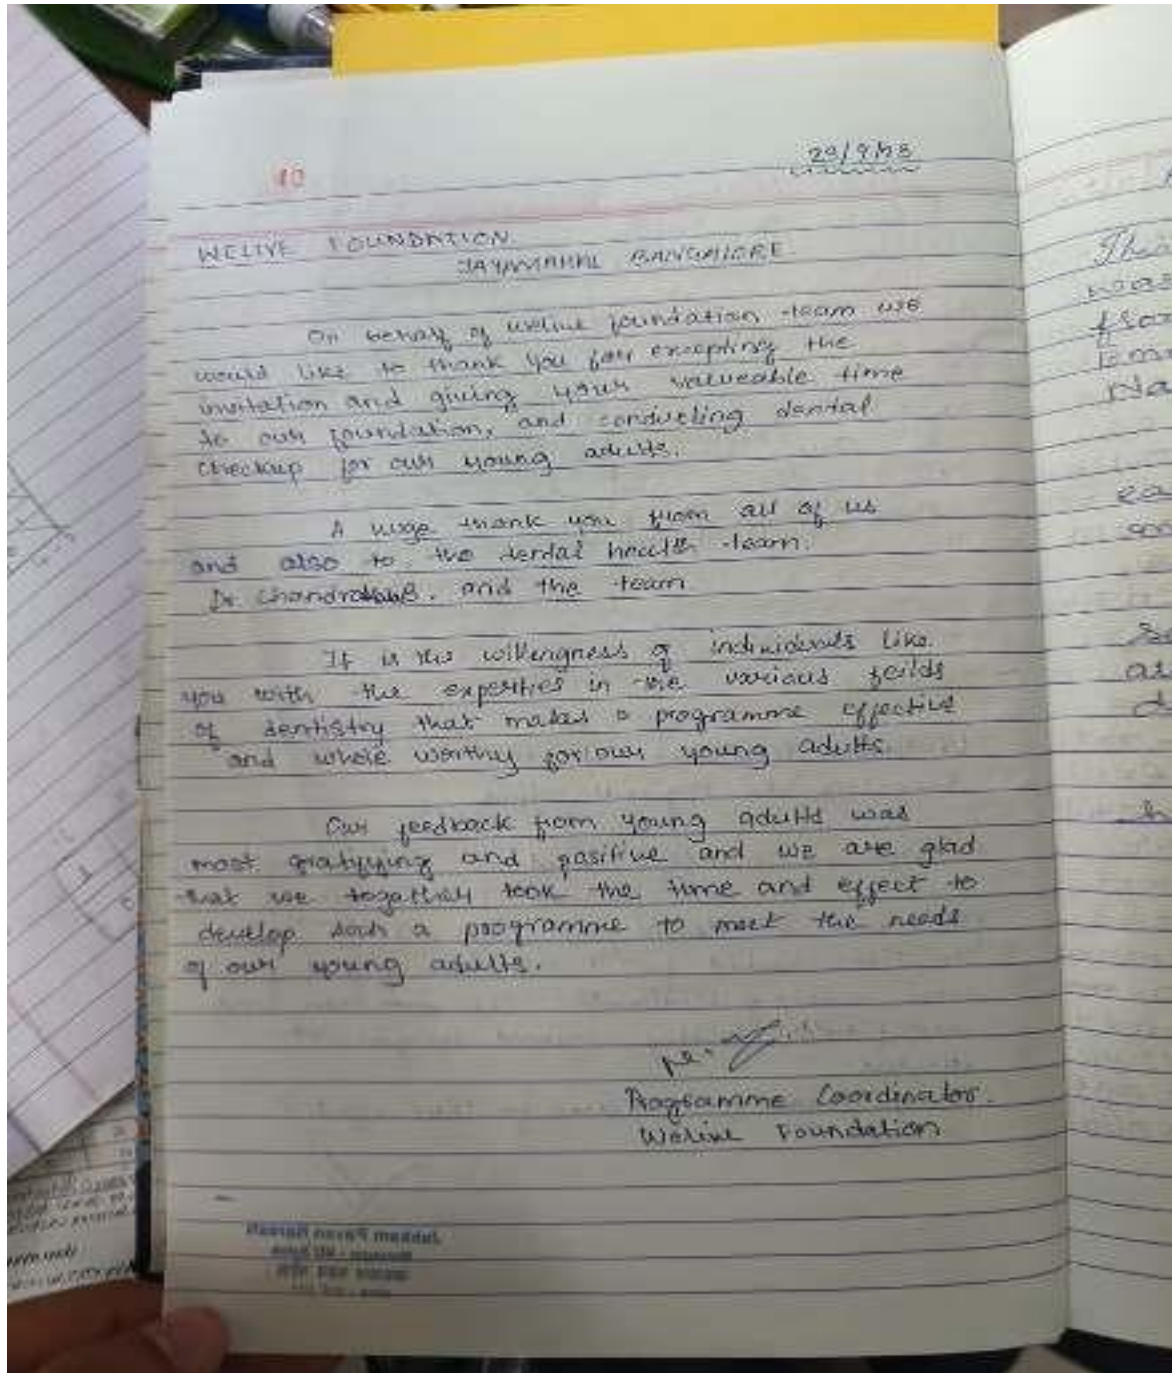 10
29/9/23
WELIVE FOUNDATION
JAYAMAHAL BANGALORE
On behalf of welive foundation team we
would like to thank you for excepting the
invitation and giving your valueable time
to our foundation, and conducting dental
checkup for our young adults.
A huge thank you from all of us
and also to the dental health team.
Dr. and the team
It is the willengness of individuals like
you with the experties in the various feilds
of dentistry that makes a programme effective
and whole worthy for our young adults.
Our feedback from young adults was
most gratifying and positive and we are glad
that we together took the time and effect to
develop such a programme to meet the needs
of our young adults.
Programme Coordinator.
Welive Foundation